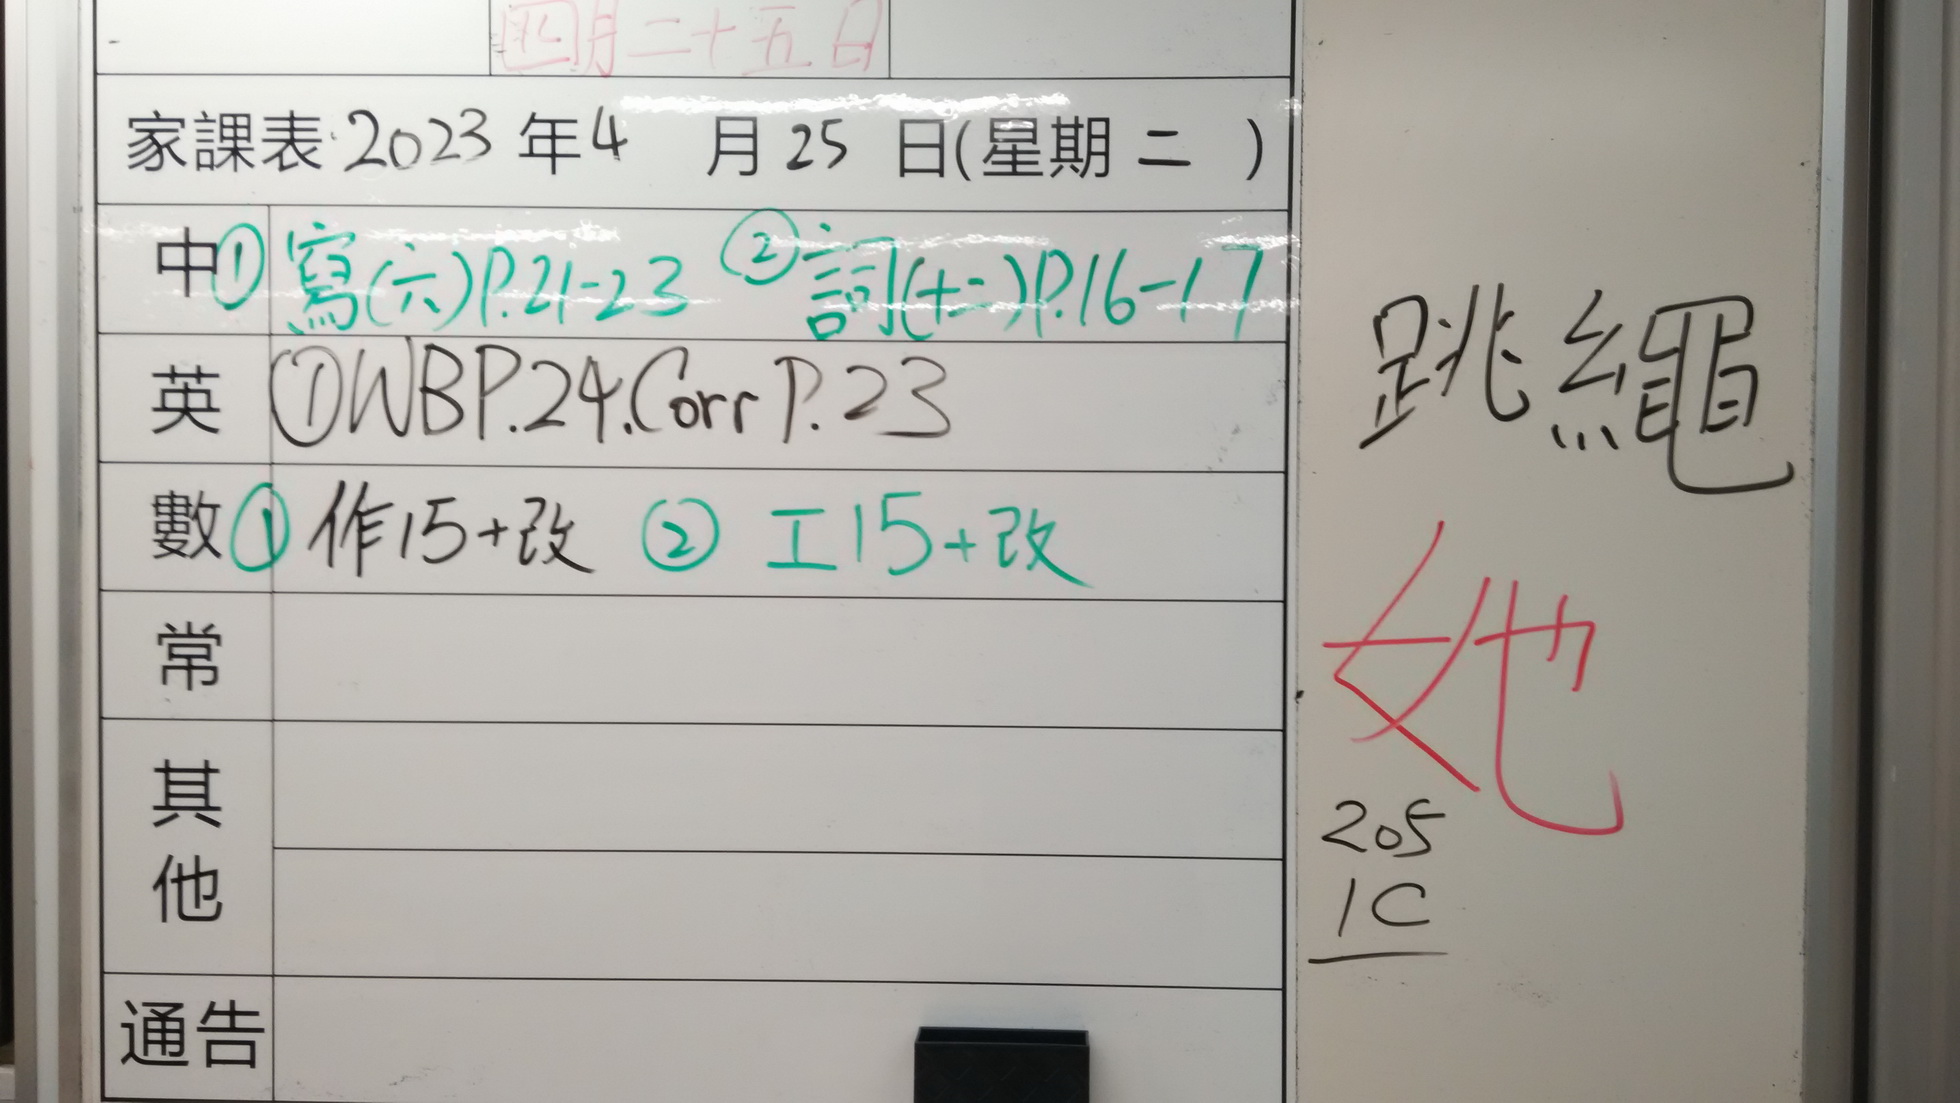 四月二十五日
家課表 2023 年 4 月 25 日(星期 二 )
中 ① 寫(六)P.21-23 ② 詞(十二)P.16-17
英 ① WB P.24. Corr P.23
數 ① 作15+改 ② 工15+改
常
其他
通告
跳繩
她
205
1C